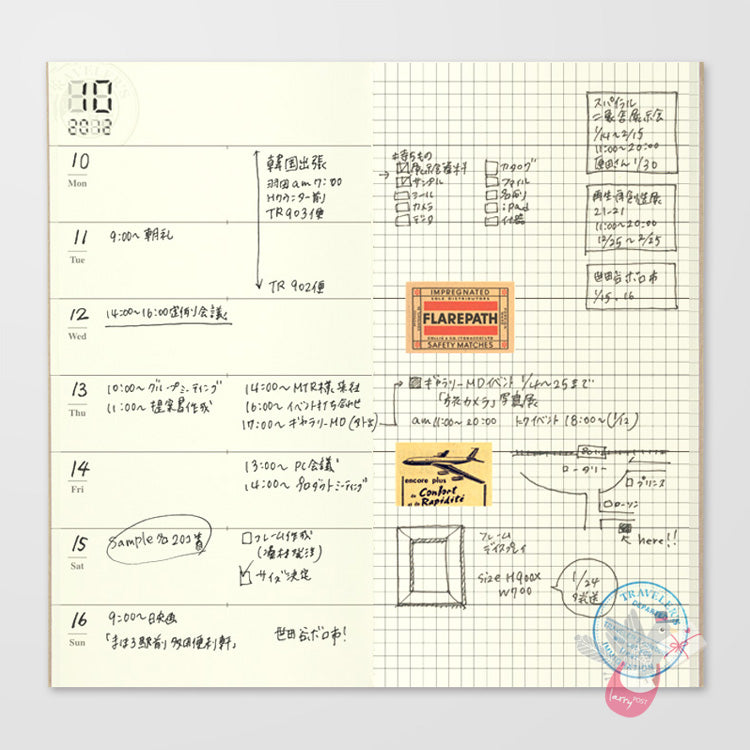 10
2012
10
Mon
韓国出張
羽田am7:00
Hカウンター前
TR903便
11
Tue
9:00〜朝礼
TR902便
12
Wed
14:00〜16:00定例り会議
13
Thu
10:00〜グループミーティング
11:00〜提案書作成
14:00〜MTR様来社
16:00〜イベント打ち合わせ
17:00〜ギャラリーMD
14
Fri
13:00〜PC会議
14:00〜プロダクトミーティング
15
Sat
Sample
フレーム作成
サイズ決定
16
Sun
9:00〜映画
「まほろ駅前多田便利軒」
世田谷ボロ市!
持ちもの
展示会資料
サンプル
ツール
カメラ
カタログ
ファイル
名刺
iPad
スパイラル
展示会
1/14〜2/15
11:00〜20:00
原田さん1/30
21-21
11:00〜20:00
12/25〜2/25
世田谷ボロ市
1/15.16
IMPREGNATED
SOLE DISTRIBUTORS
FLAREPATH
SAFETY MATCHES
ギャラリーMDイベント 1/4〜25まで
「カメラ」写真展
am11:00〜20:00 トークイベント18:00〜(1/12)
encore plus
de Confort
et de Rapidité
ロータリー
プリンス
ローソン
here!!
フレーム
ディスプレイ
size H900X
W700
1/24
放送
TRAVELER'S
larry POST